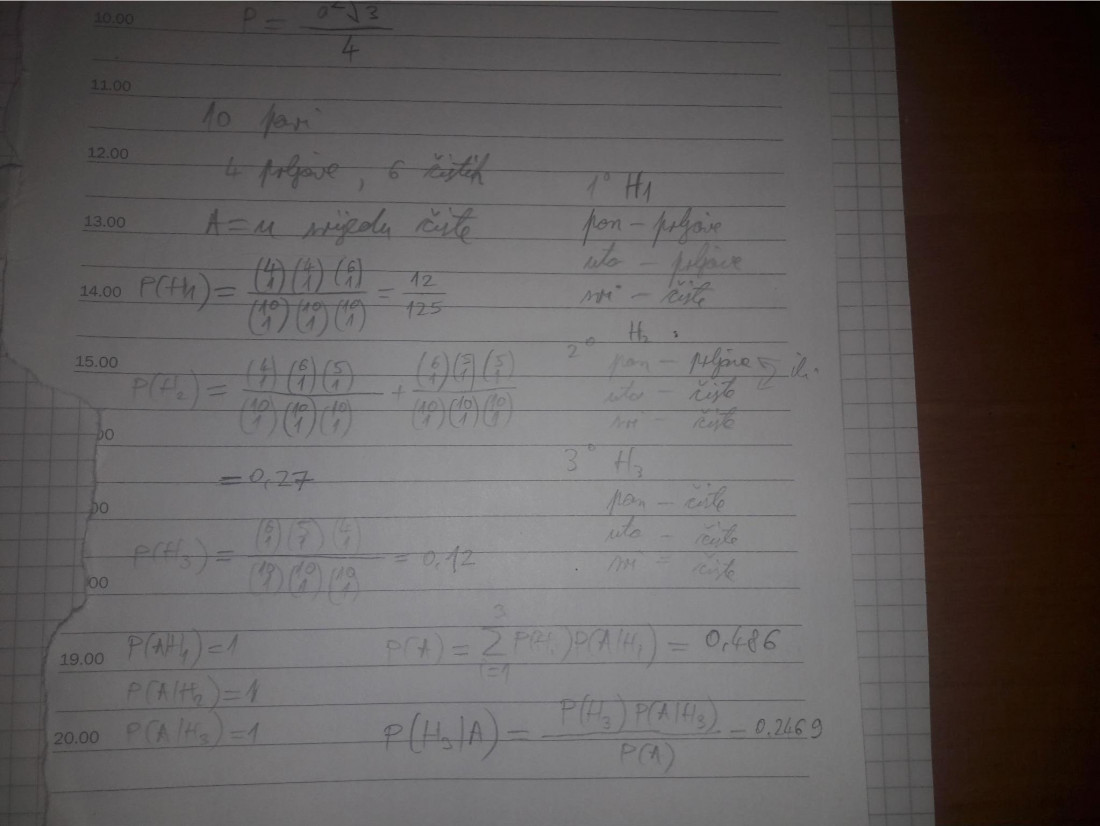 10.00
P = a²√3 / 4
11.00
10 pari
12.00
4 prljave, 6 čistih
13.00
A = u srijedu čiste
14.00
P(H1) = (4 1)(4 1)(6 1) / (10 1)(10 1)(10 1) = 12 / 125
15.00
P(H2) = (4 1)(6 1)(5 1) / (10 1)(10 1)(10 1) + (6 1)(5 1)(5 1) / (10 1)(10 1)(10 1)
00
= 0,27
00
P(H3) = (6 1)(5 1)(4 1) / (10 1)(10 1)(10 1) = 0,12
00
1° H1
pon - prljave
uto - prljave
sri - čiste
2° H2
pon - prljave ili
uto - čiste
sri - čiste
3° H3
pon - čiste
uto - čiste
sri - čiste
19.00
P(A|H1) = 1
P(A|H2) = 1
20.00
P(A|H3) = 1
P(A) = 3 Σ i=1 P(Hi)P(A|Hi) = 0,486
P(H3|A) = P(H3) P(A|H3) / P(A) = 0.2469